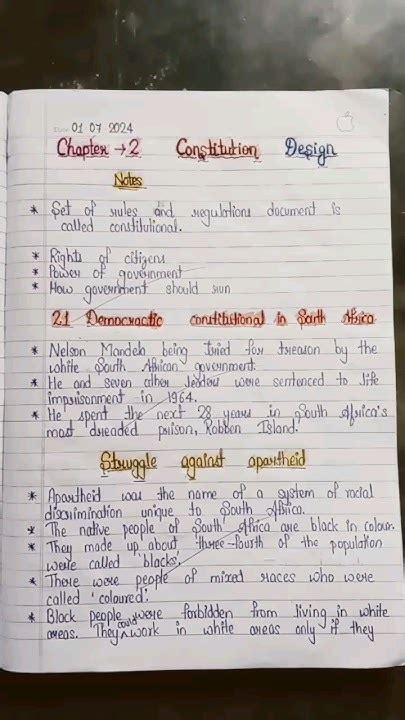 01 07 2024
Chapter → 2 Constitution Design
Notes
* Set of rules and regulations document is
called constitutional.
* Rights of citizens
* Power of government
* How government should run
2.1 Democractic constitutional in South Africa
* Nelson Mandela being tried for treason by the
white South African government.
* He and seven other leaders were sentenced to life
imprisonment in 1964.
* He spent the next 28 years in South Africa's
most dreaded prison, Robben Island.
Struggle against apartheid
* Apartheid was the name of a system of racial
discrimination unique to South Africa.
* The native people of South Africa are black in colour.
* They made up about 'three-fourth of the population
were called 'blacks'.
* There were people of mixed races who were
called 'coloured'.
* Black people were forbidden from living in white
areas. They could work in white areas only if they